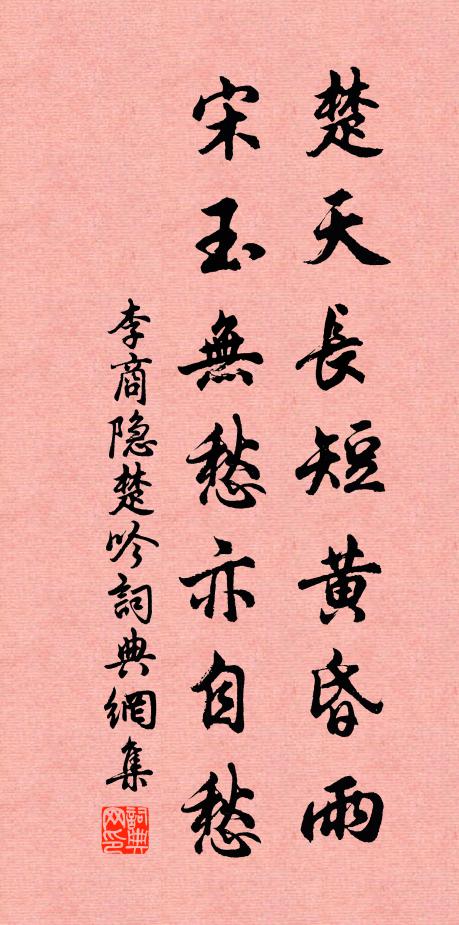 楚天長短黄昏雨
宋玉無愁亦自愁
李商隐楚吟詞典網集
詞典网印